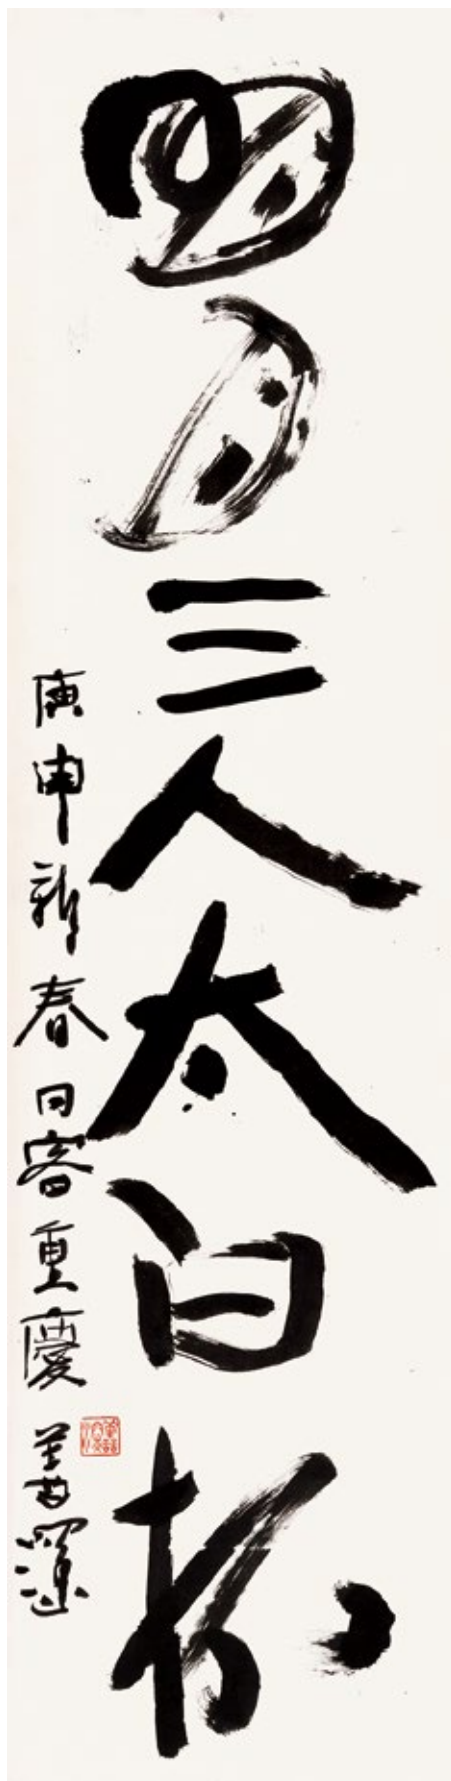 明月三人太白杯
庚申新春同客重慶